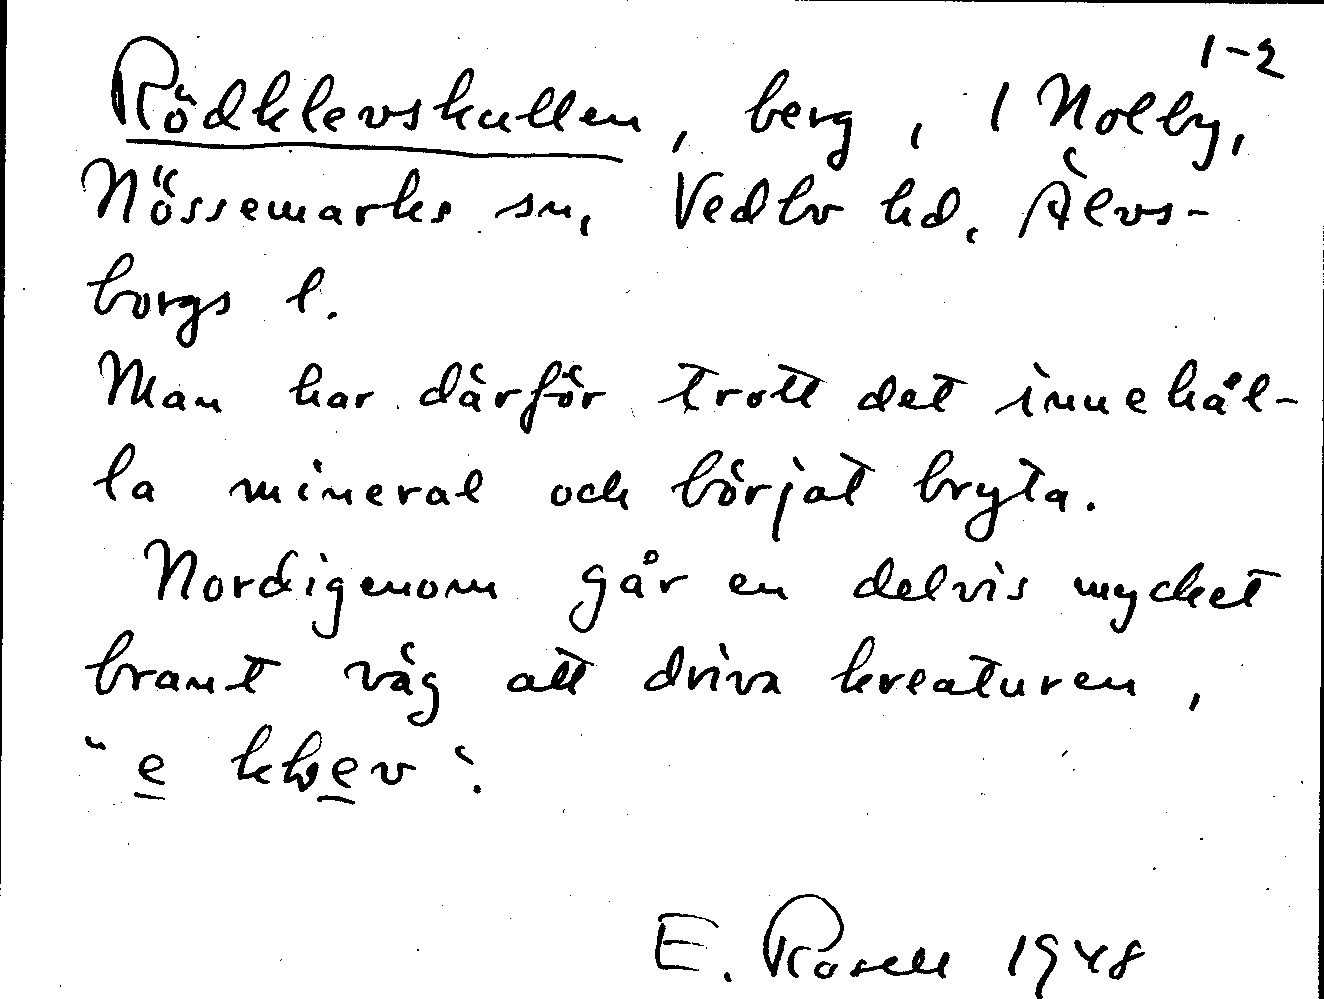 1-2
Rödklevskullen, berg, 1 Nolby,
Nössemarks sn, Vedbo hd, Älvs-
borgs l.
Man har därför trott det innehål-
la mineral och börjat bryta.
Nordigenom går en delvis mycket
brant väg att driva kreaturen,
"e klev".
E. Rosell 1948